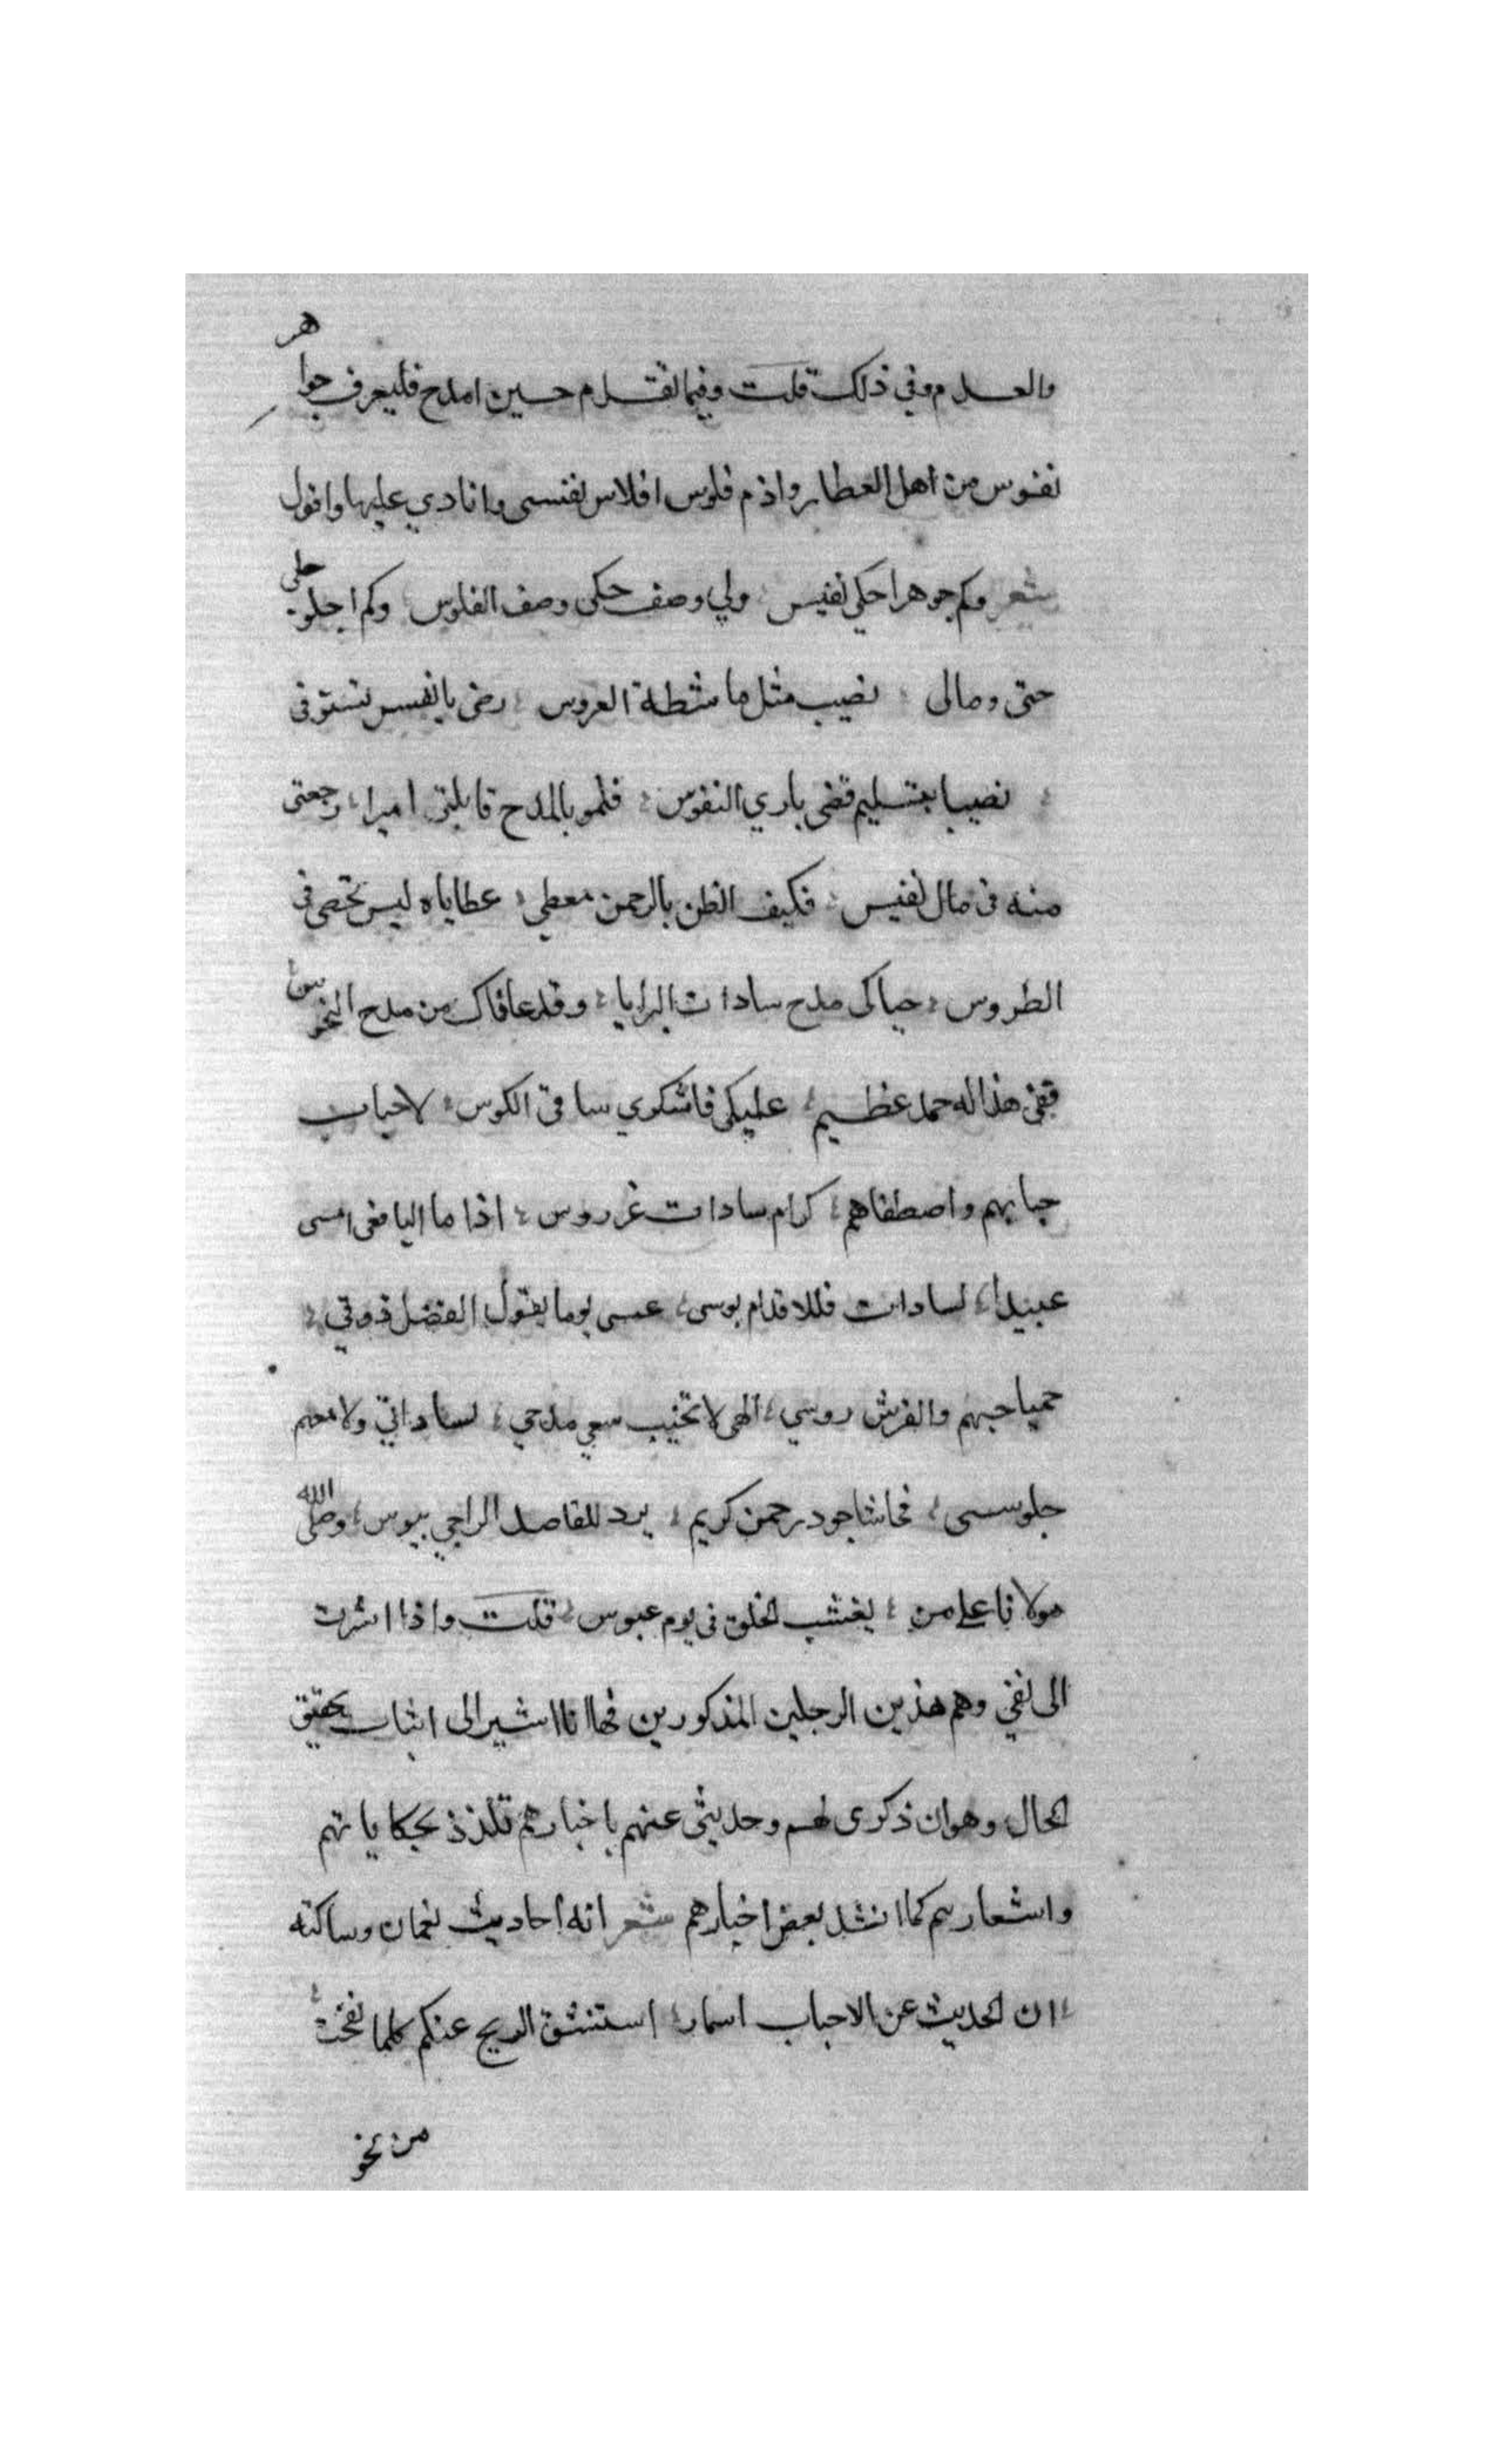 والعدم وفي ذلك قلت وفيما تقدم حسين امدح فليعرف جواهر
نفوس من اهل العطا واذم فلوس افلاس نفسى وانادي عليها واقول
شعر وكم جوهرا حكى نفيس ولي وصف حكى وصف الفلوس وكم اجلو حلى
حتى ومالى نصيب مثل ماشطة العروس رضى يا نفس تستوفى
نصيبا بتسليم قضى باري النفوس فلمو بالمدح قابلتى اميرا رجعتى
منه فى مال نفيس فكيف الظن بالرحمن معطى عطاياه ليس تحصى فى
الطروس حباكى مدح سادات البرايا وقد عافاك من مدح النحوس
ففى هذا له حمد عظيم عليكى فاشكوي ساقى الكوس لاحباب
حبا بهم واصطفاهم كرام سادات غر روس اذا ما اليافعى امسى
عبيدا لسادات فللاقدام بوسى عسى يوما يقول الفضل ذوقي
حميا حبهم والفرش روسي الهى لا تخيب سعي مدحي لساداتي ولا معهم
جلوسسى فحاشا جود رحمن كريم يرد للقاصد الراجي بيوس وصلى الله
مولانا على من يغشب الخلق فى يوم عبوس قلت واذا اشرت
الى نفي وهم هذين الرجلين المذكورين فها انا اشير الى اثبات تحقيق
الحال وهوان ذكرى لهم وحديثى عنهم باخبارهم تلذذ بحكاياتهم
واشعارهم كما انشد بعض اخبارهم شعر انه احاديث نعمان وساكنه
ان الحديث عن الاحباب اسمار استنشق الريح عنكم كلما نفحت
من نحو